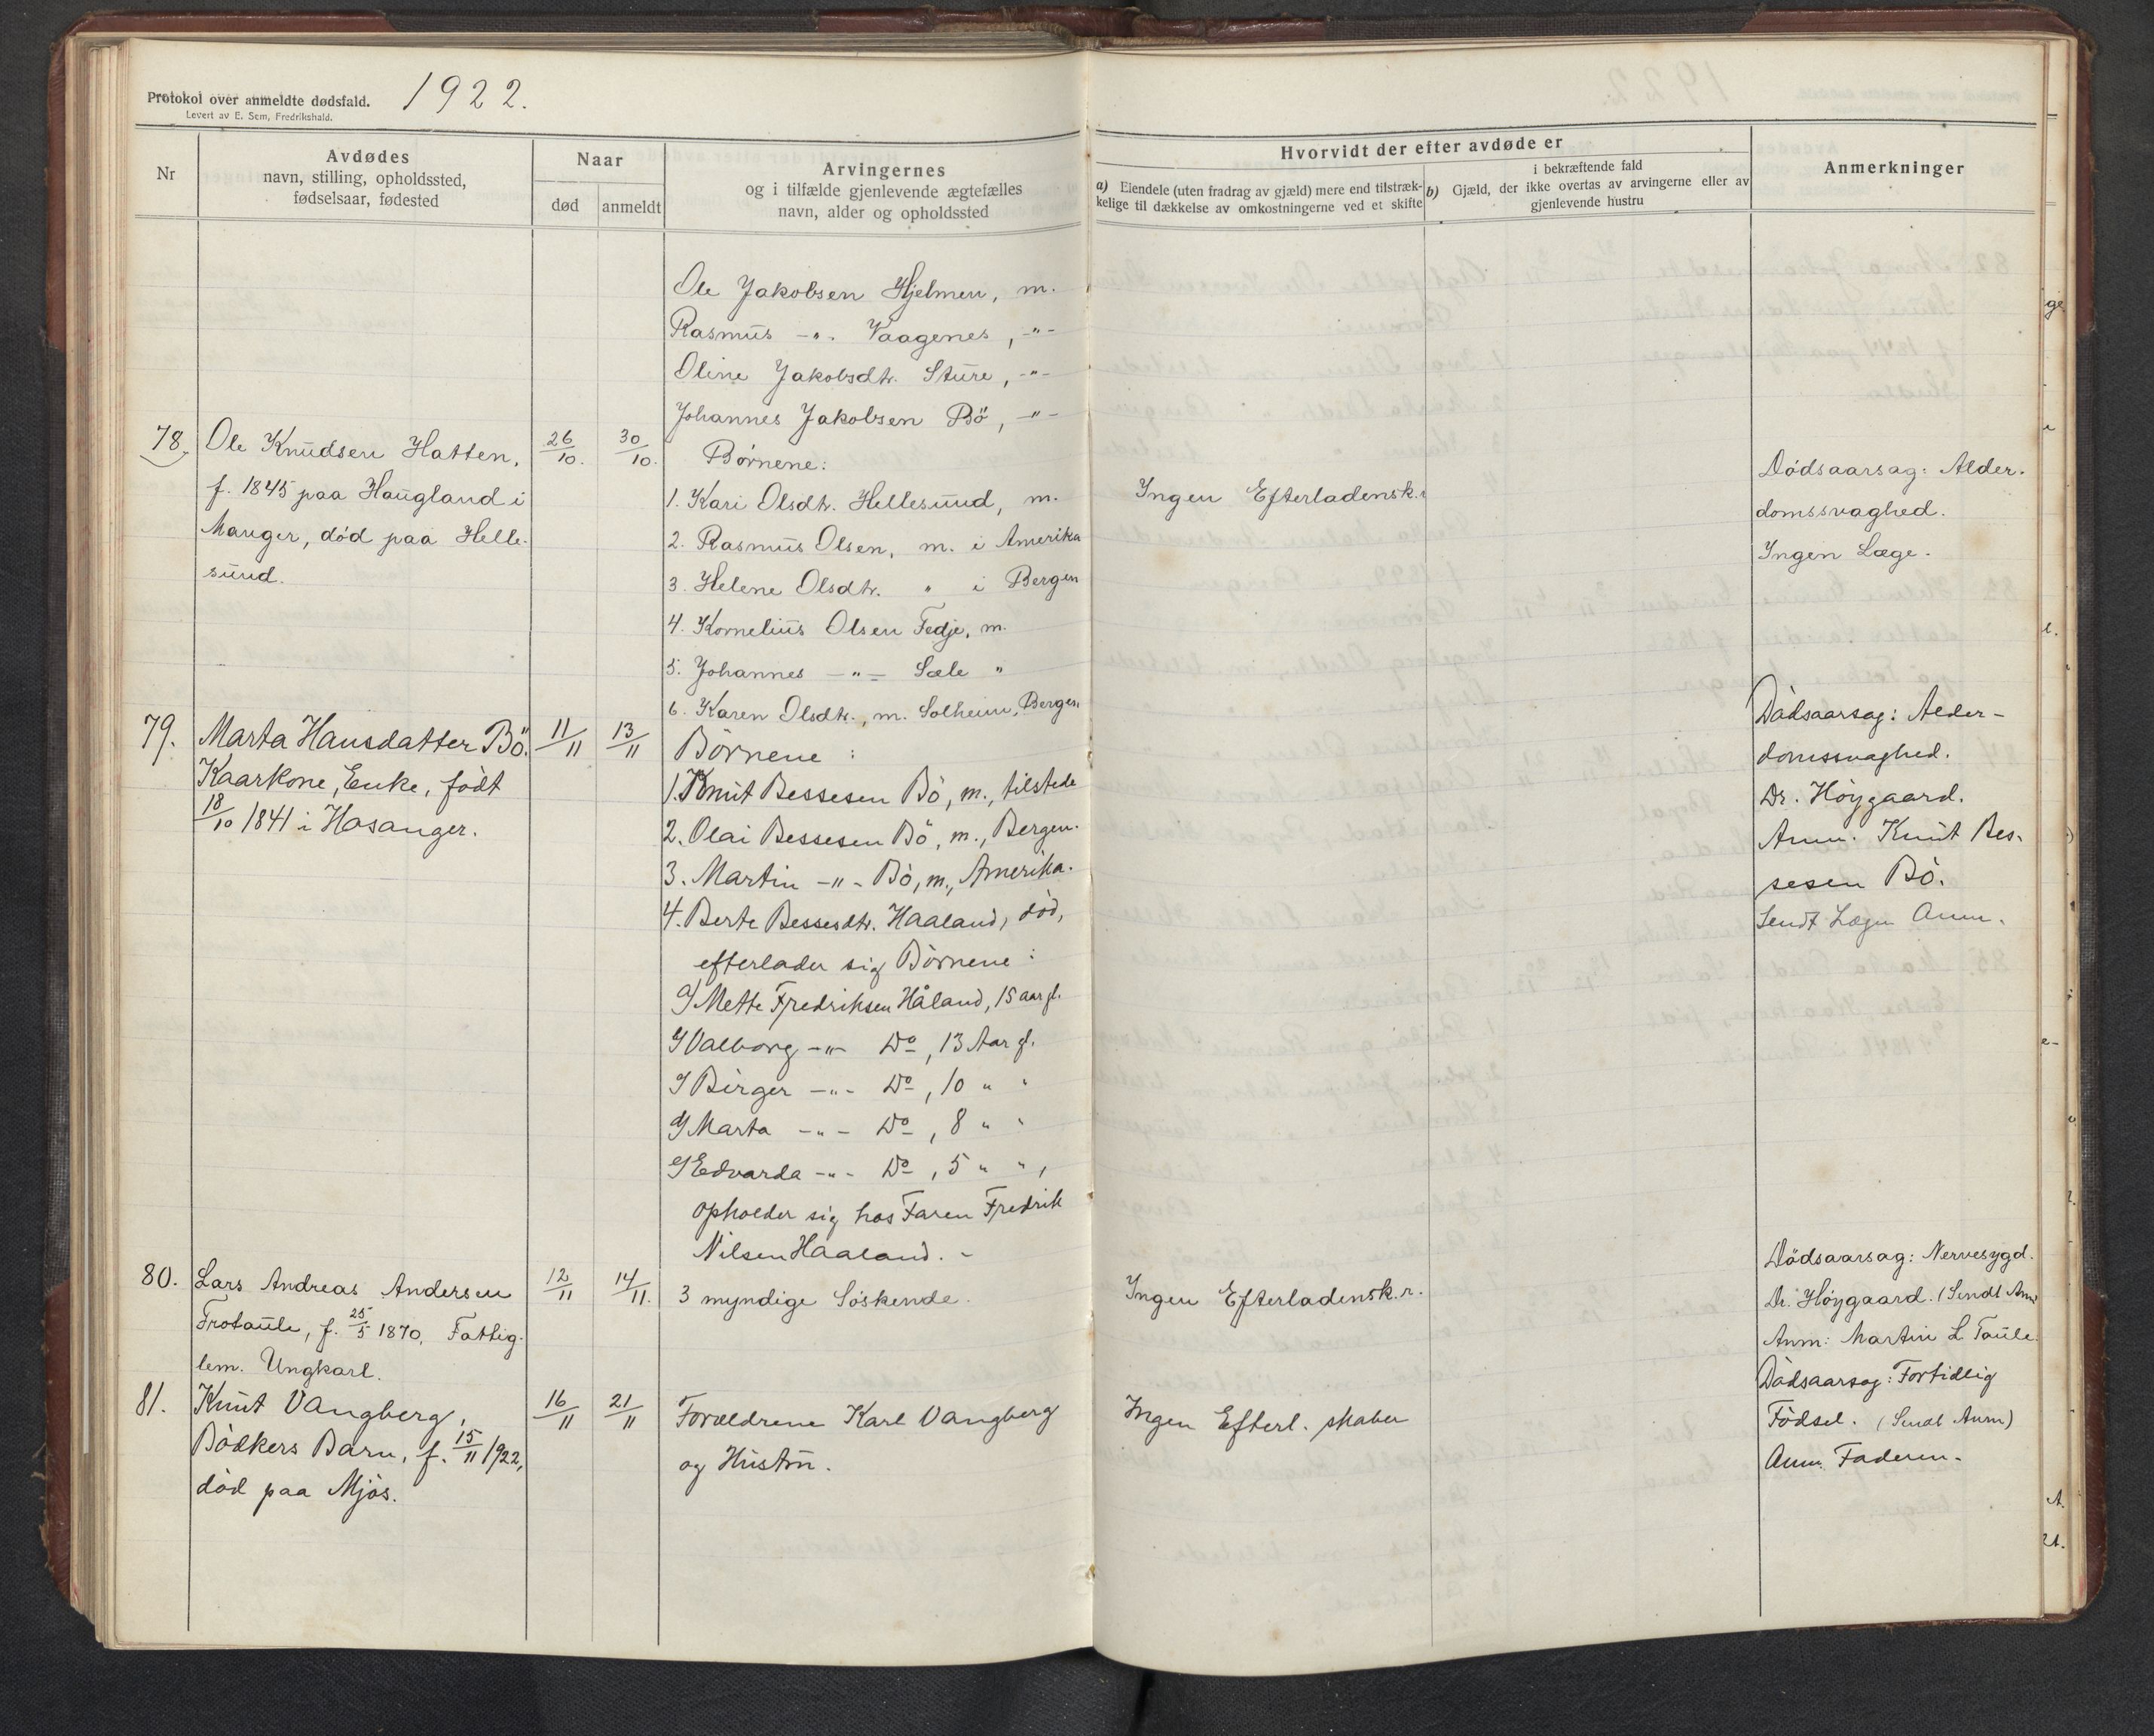 Protokol over anmeldte dødsfald. 1922.
Levert av E. Sem, Fredrikshald.
Nr
Avdødes
navn, stilling, opholdssted,
fødselsaar, fødested
Naar
død
anmeldt
Arvingernes
og i tilfælde gjenlevende ægtefælles
navn, alder og opholdssted
Hvorvidt der efter avdøde er
a) Eiendele (uten fradrag av gjæld) mere end tilstræk-
kelige til dækkelse av omkostningerne ved et skifte
i bekræftende fald
b) Gjæld, der ikke overtas av arvingerne eller av
gjenlevende hustru
Anmerkninger
Ole Jakobsen Hjelmen, m.
Rasmus -"- Vaagenes, -"-
Oline Jakobsdtr. Sture, -"-
Johannes Jakobsen Bö, -"-
78.
Ole Knudsen Hatten,
f. 1845 paa Haugland i
Manger, död paa Helle-
sund.
26/10.
30/10.
Börnene:
1. Kari Olsdtr. Hellesund, m.
2. Rasmus Olsen, m. i Amerika
3. Helene Olsdtr. " i Bergen
4. Kornelius Olsen Fedje, m.
5. Johannes -"- Sæle "
6. Karen Olsdtr., m. Solheim, Bergen
Ingen Efterladensk.r
Dödsaarsag: Alder-
domssvaghed.
Ingen Læge.
79.
Marta Hansdatter Bö.
Kaarkone, Enke, født
18/10 1841 i Hosanger.
11/11
13/11
Börnene:
1. Knut Bessesen Bö, m., tilstede
2. Olai Bessesen Bö, m., Bergen.
3. Martin -"- Bö, m., Amerika.
4. Berte Bessesdtr. Haaland, död,
efterlader sig Börnene:
a/ Mette Fredriksen Håland, 15 aar gl.
b/ Valborg -"- Do, 13 Aar gl.
c/ Birger -"- Do, 10 " "
d/ Marta -"- Do, 8 " "
e/ Edvarda -"- Do, 5 " ",
opholder sig hos Faren Fredrik
Nilsen Haaland. -
Dödsaarsag: Alder-
domssvaghed.
Dr. Höygaard.
Anm. Knut Bes-
sesen Bö.
Sendt Lægen Anm.
80.
Lars Andreas Andersen
Frotaule, f. 25/5 1870, Fattig-
lem. Ungkarl.
12/11
14/11.
3 myndige Söskende.
Ingen Efterladensk.r.
Dödsaarsag: Nervesygd.
Dr. Höygaard. (Sendt Anm
Anm: Martin L. Taule.
81.
Knut Vangberg,
Bödkers Barn, f. 15/11 1922,
död paa Mjös.
16/11
21/11
Forældrene Karl Vangberg
og Hustru.
Ingen Efterl. skaber
Dödsaarsag: Fortidlig
Födsel. (Sendt Anm)
Anm. Faderen.